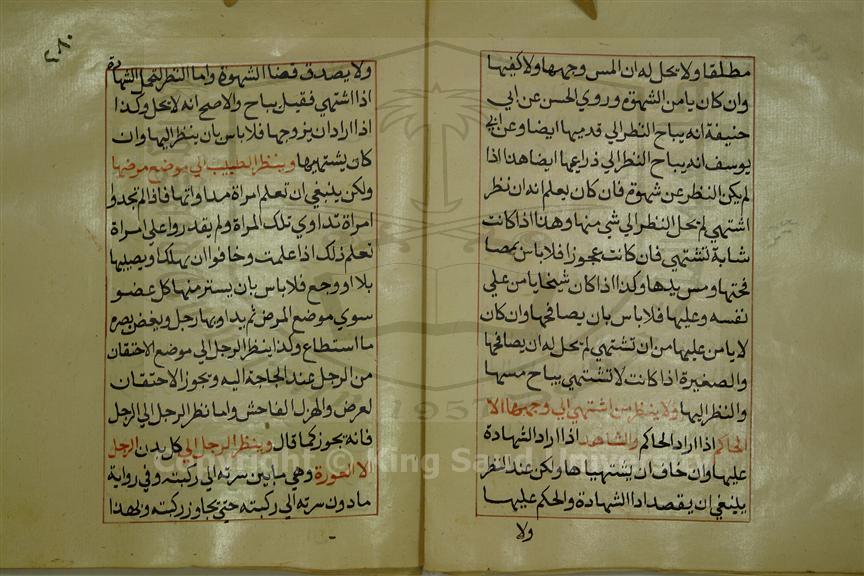 مطلقا ولا يحل له ان المس وجهها ولا كفيها
وان كان يامن الشهوة وروي الحسن عن ابي
حنيفة انه يباح النظر الي قدميها ايضا وعن ابي
يوسف انه يباح النظر الي ذراعيها ايضا هذا اذا
لم يكن النظر عن شهوة فان كان يعلم انه ان نظر
اشتهي لم يحل النظر الي شي منها وهذا اذا كانت
شابة تشتهي فان كانت عجوزا فلا باس بمصا
فحتها ومس يدها وكذا اذا كان شيخا يامن علي
نفسه وعليها فلا باس بان يصافحها وان كان
لا يامن عليها من ان تشتهي لم يحل له ان يصافحها
والصغيرة اذا كانت لا تشتهي يباح مسها
والنظر اليها ولا ينظر من اشتهي الي وجهها الا
الحاكم اذا اراد الحاكم والشاهد اذا اراد الشهادة
عليها وان خاف ان يشتهياها ولكن عند النظر
ينبغي ان يقصد ادا الشهادة والحكم عليها
ولا
٢٨٠
ولا يصدق قضا الشهوة واما النظر لتحمل الشهادة
اذا اشتهي فقيل يباح والاصح انه لا يحل وكذا
اذا اراد ان يزوجها فلا باس بان ينظر اليها وان
كان يشتهيها وينظر الطبيب الي موضع مرضها
ولكن ينبغي ان تعلم امراة مداواتها فاذا لم تجدوا
امراة تداوي تلك المراة ولم يقدروا علي امراة
تعلم ذلك اذا علمت وخافوا ان يهلك او يصيبها
بلا او وجع فلا باس بان يستر منها كل عضو
سوي موضع المرض ثم يداويها رجل ويغض بصره
ما استطاع وكذا ينظر الرجل الي موضع الاحتقان
من الرجل عند الحاجة اليه ويجوز الاحتقان
لمرض والهزال الفاحش واما نظر الرجل الي الرجل
فانه يجوز كما قال وينظر الرجل الي كل بدن الرجل
الا العورة وهي ما بين سرته الي ركبته وفي رواية
مادون سرته الي ركبته حتي يجاوز ركبته وبهذا
Copyright © King Saud University
1957